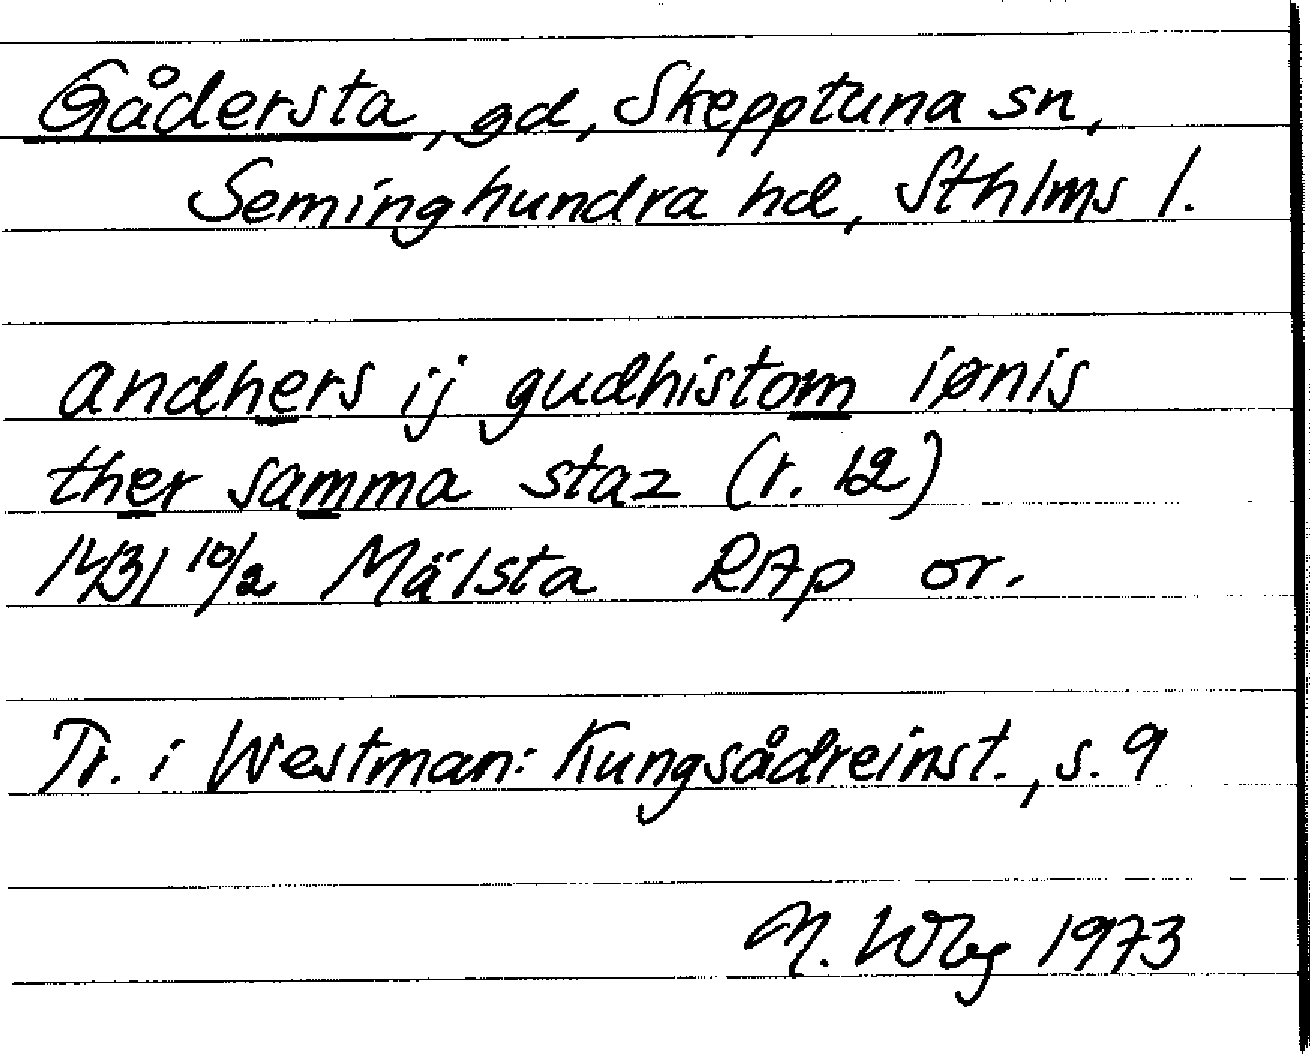 Gådersta, gd, Skepptuna sn,
Seminghundra hd, Sthlms l.
andhers ij gudhistom iønis
ther samma staz (r. 12)
1431 10/2 Mälsta RAp or.
Tr. i Westman: Kungsådreinst., s. 9
M. Wbg 1973